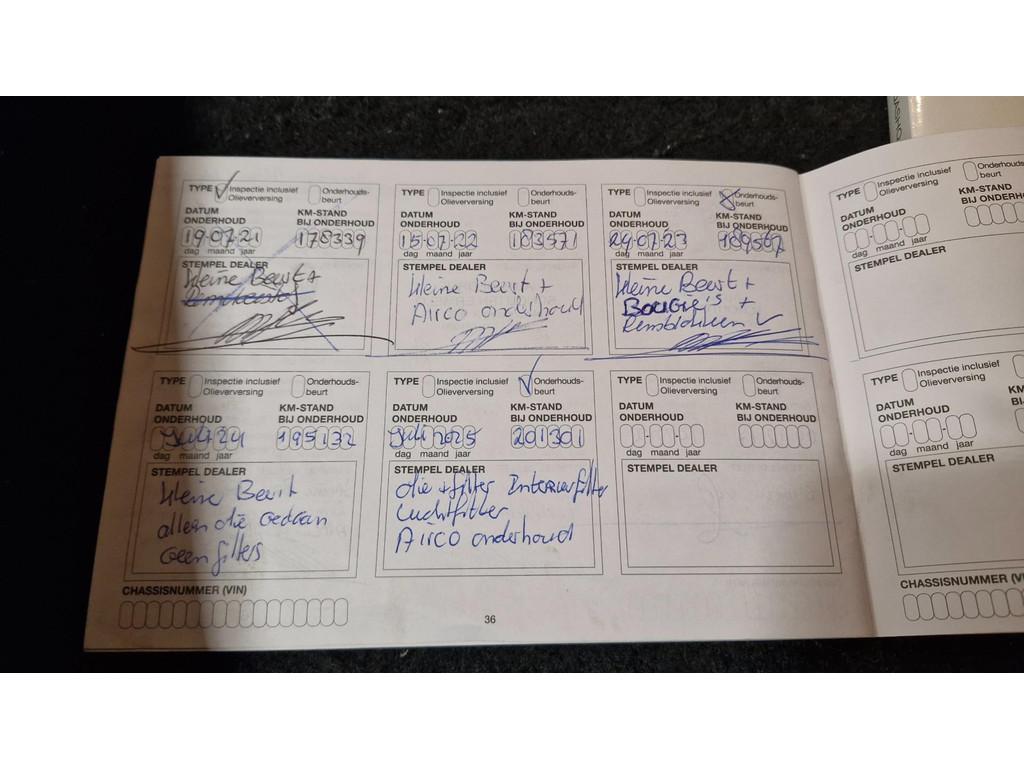 TYPE Inspectie inclusief Olieverversing Onderhouds-beurt
DATUM ONDERHOUD KM-STAND BIJ ONDERHOUD
19-07-21 178339
dag maand jaar
STEMPEL DEALER
kleine Beurt +
TYPE Inspectie inclusief Olieverversing Onderhouds-beurt
DATUM ONDERHOUD KM-STAND BIJ ONDERHOUD
15-07-22 183571
dag maand jaar
STEMPEL DEALER
kleine Beurt +
Airco onderhoud
TYPE Inspectie inclusief Olieverversing Onderhouds-beurt
DATUM ONDERHOUD KM-STAND BIJ ONDERHOUD
24-07-23 189567
dag maand jaar
STEMPEL DEALER
kleine Beurt +
Bougie's +
Remblokken
TYPE Inspectie inclusief Olieverversing
DATUM ONDERHOUD KM-STAND BIJ
dag maand jaar
STEMPEL DEALER
TYPE Inspectie inclusief Olieverversing Onderhouds-beurt
DATUM ONDERHOUD KM-STAND BIJ ONDERHOUD
Juli 24 195132
dag maand jaar
STEMPEL DEALER
kleine Beurt
alleen olie gedaan
geen filters
TYPE Inspectie inclusief Olieverversing Onderhouds-beurt
DATUM ONDERHOUD KM-STAND BIJ ONDERHOUD
Juli 2025 201301
dag maand jaar
STEMPEL DEALER
olie + filter Interieurfilter
Luchtfilter
Airco onderhoud
TYPE Inspectie inclusief Olieverversing Onderhouds-beurt
DATUM ONDERHOUD KM-STAND BIJ ONDERHOUD
dag maand jaar
STEMPEL DEALER
TYPE Inspectie inclusief Olieverversing
DATUM ONDERHOUD KM-STAND BIJ
dag maand jaar
STEMPEL DEALER
CHASSISNUMMER (VIN)
CHASSISNUMMER (VI
36